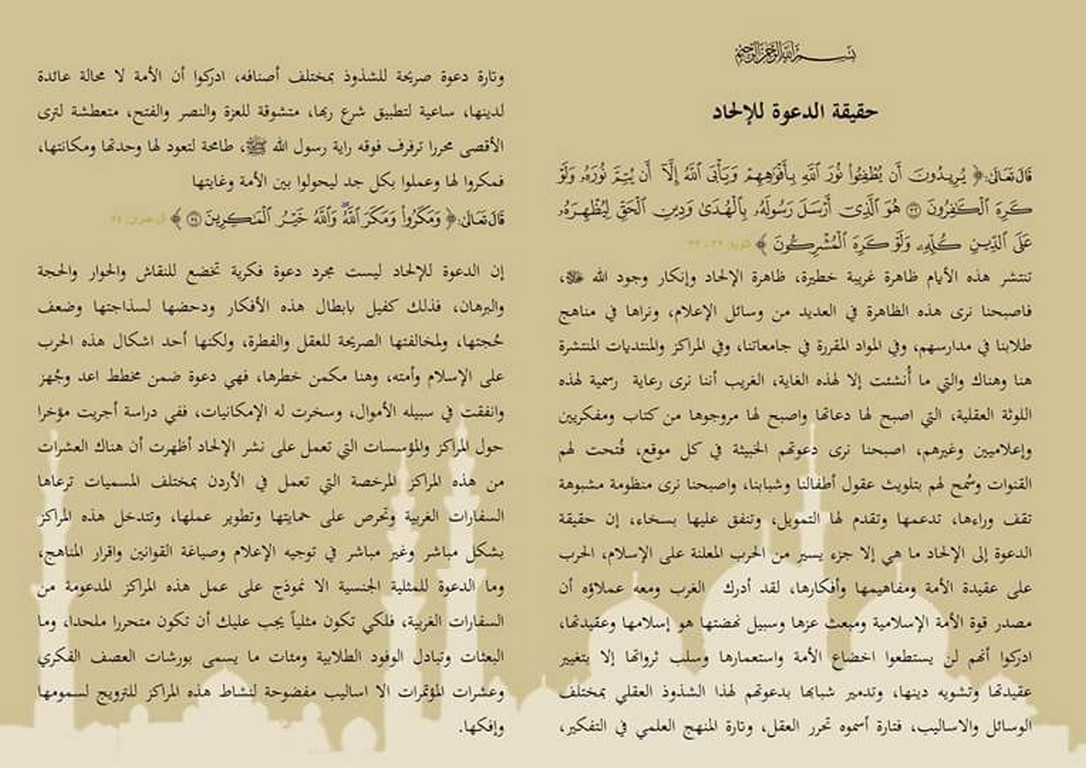 بسم الله الرحمن الرحيم
حقيقة الدعوة للإلحاد
قَالَ تَعَالَىٰ: ﴿ يُرِيدُونَ أَن يُطْفِئُوا۟ نُورَ ٱللَّهِ بِأَفْوَٰهِهِمْ وَيَأْبَى ٱللَّهُ إِلَّآ أَن يُتِمَّ نُورَهُۥ وَلَوْ
كَرِهَ ٱلْكَٰفِرُونَ ۝٣٢ هُوَ ٱلَّذِىٓ أَرْسَلَ رَسُولَهُۥ بِٱلْهُدَىٰ وَدِينِ ٱلْحَقِّ لِيُظْهِرَهُۥ
عَلَى ٱلدِّينِ كُلِّهِۦ وَلَوْ كَرِهَ ٱلْمُشْرِكُونَ ﴾ التوبة: ٣٢ - ٣٣
تنتشر هذه الأيام ظاهرة غريبة خطيرة، ظاهرة الإلحاد وإنكار وجود الله ﷻ،
فاصبحنا نرى هذه الظاهرة في العديد من وسائل الإعلام، ونراها في مناهج
طلابنا في مدارسهم، وفي المواد المقررة في جامعاتنا، وفي المراكز والمنتديات المنتشرة
هنا وهناك والتي ما أُنشئت إلا لهذه الغاية، الغريب أننا نرى رعاية رسمية لهذه
اللوثة العقلية، التي اصبح لها دعاتها واصبح لها مروجوها من كتاب ومفكريين
وإعلاميين وغيرهم، اصبحنا نرى دعوتهم الخبيثة في كل موقع، فُتحت لهم
القنوات وسُمح لهم بتلويث عقول أطفالنا وشبابنا، واصبحنا نرى منظومة مشبوهة
تقف وراءها، تدعمها وتقدم لها التمويل، وتنفق عليها بسخاء، إن حقيقة
الدعوة إلى الإلحاد ما هي إلا جزء يسير من الحرب المعلنة على الإسلام، الحرب
على عقيدة الأمة ومفاهيمها وأفكارها، لقد أدرك الغرب ومعه عملاؤه أن
مصدر قوة الأمة الإسلامية ومبعث عزها وسبيل نهضتها هو إسلامها وعقيدتها،
ادركوا أنهم لن يستطعوا اخضاع الأمة واستعمارها وسلب ثرواتها إلا بتغيير
عقيدتها وتشويه دينها، وتدمير شبابها بدعوتهم لهذا الشذوذ العقلي بمختلف
الوسائل والاساليب، فتارة أسموه تحرر العقل، وتارة المنهج العلمي في التفكير،
وتارة دعوة صريحة للشذوذ بمختلف أصنافه، ادركوا أن الأمة لا محالة عائدة
لدينها، ساعية لتطبيق شرع ربها، متشوقة للعزة والنصر والفتح، متعطشة لترى
الأقصى محررا ترفرف فوقه راية رسول الله ﷺ، طامحة لتعود لها وحدتها ومكانتها،
فمكروا لها وعملوا بكل جد ليحولوا بين الأمة وغايتها
قَالَ تَعَالَىٰ: ﴿ وَمَكَرُوا۟ وَمَكَرَ ٱللَّهُ وَٱللَّهُ خَيْرُ ٱلْمَٰكِرِينَ ۝٥٤ ﴾ آل عمران: ٥٤
إن الدعوة للإلحاد ليست مجرد دعوة فكرية تخضع للنقاش والحوار والحجة
والبرهان، فذلك كفيل بابطال هذه الأفكار ودحضها لسذاجتها وضعف
حُجتها، ولمخالفتها الصريحة للعقل والفطرة، ولكنها أحد اشكال هذه الحرب
على الإسلام وأمته، وهنا مكمن خطرها، فهي دعوة ضمن مخطط اعد وجُهز
وانفقت في سبيله الأموال، وسخرت له الإمكانيات، ففي دراسة أجريت مؤخرا
حول المراكز والمؤسسات التي تعمل على نشر الإلحاد أظهرت أن هناك العشرات
من هذه المراكز المرخصة التي تعمل في الأردن بمختلف المسميات ترعاها
السفارات الغربية وتحرص على حمايتها وتطوير عملها، وتتدخل هذه المراكز
بشكل مباشر وغير مباشر في توجيه الإعلام وصياغة القوانين واقرار المناهج،
وما الدعوة للمثلية الجنسية الا نموذج على عمل هذه المراكز المدعومة من
السفارات الغربية، فلكي تكون مثلياً يجب عليك أن تكون متحررا ملحدا، وما
البعثات وتبادل الوفود الطلابية ومئات ما يسمى بورشات العصف الفكري
وعشرات المؤتمرات الا اساليب مفضوحة لنشاط هذه المراكز للترويج لسمومها
وإفكها.